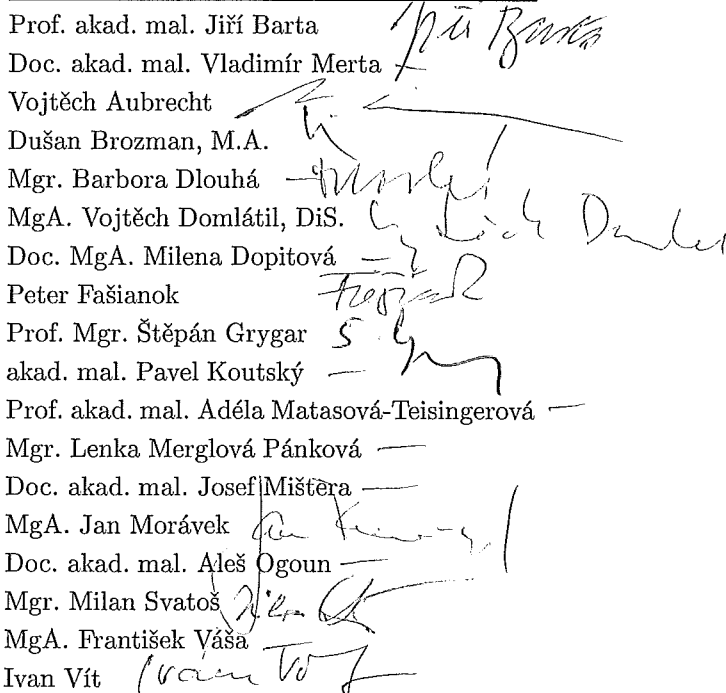 Prof. akad. mal. Jiří Barta Jiří Barta
Doc. akad. mal. Vladimír Merta —
Vojtěch Aubrecht
Dušan Brozman, M.A.
Mgr. Barbora Dlouhá —
MgA. Vojtěch Domlátil, DiS.
Doc. MgA. Milena Dopitová —
Peter Fašianok
Prof. Mgr. Štěpán Grygar Š.
akad. mal. Pavel Koutský —
Prof. akad. mal. Adéla Matasová-Teisingerová —
Mgr. Lenka Merglová Pánková —
Doc. akad. mal. Josef Mištera —
MgA. Jan Morávek
Doc. akad. mal. Aleš Ogoun —
Mgr. Milan Svatoš
MgA. František Váša —
Ivan Vít Ivan Vít